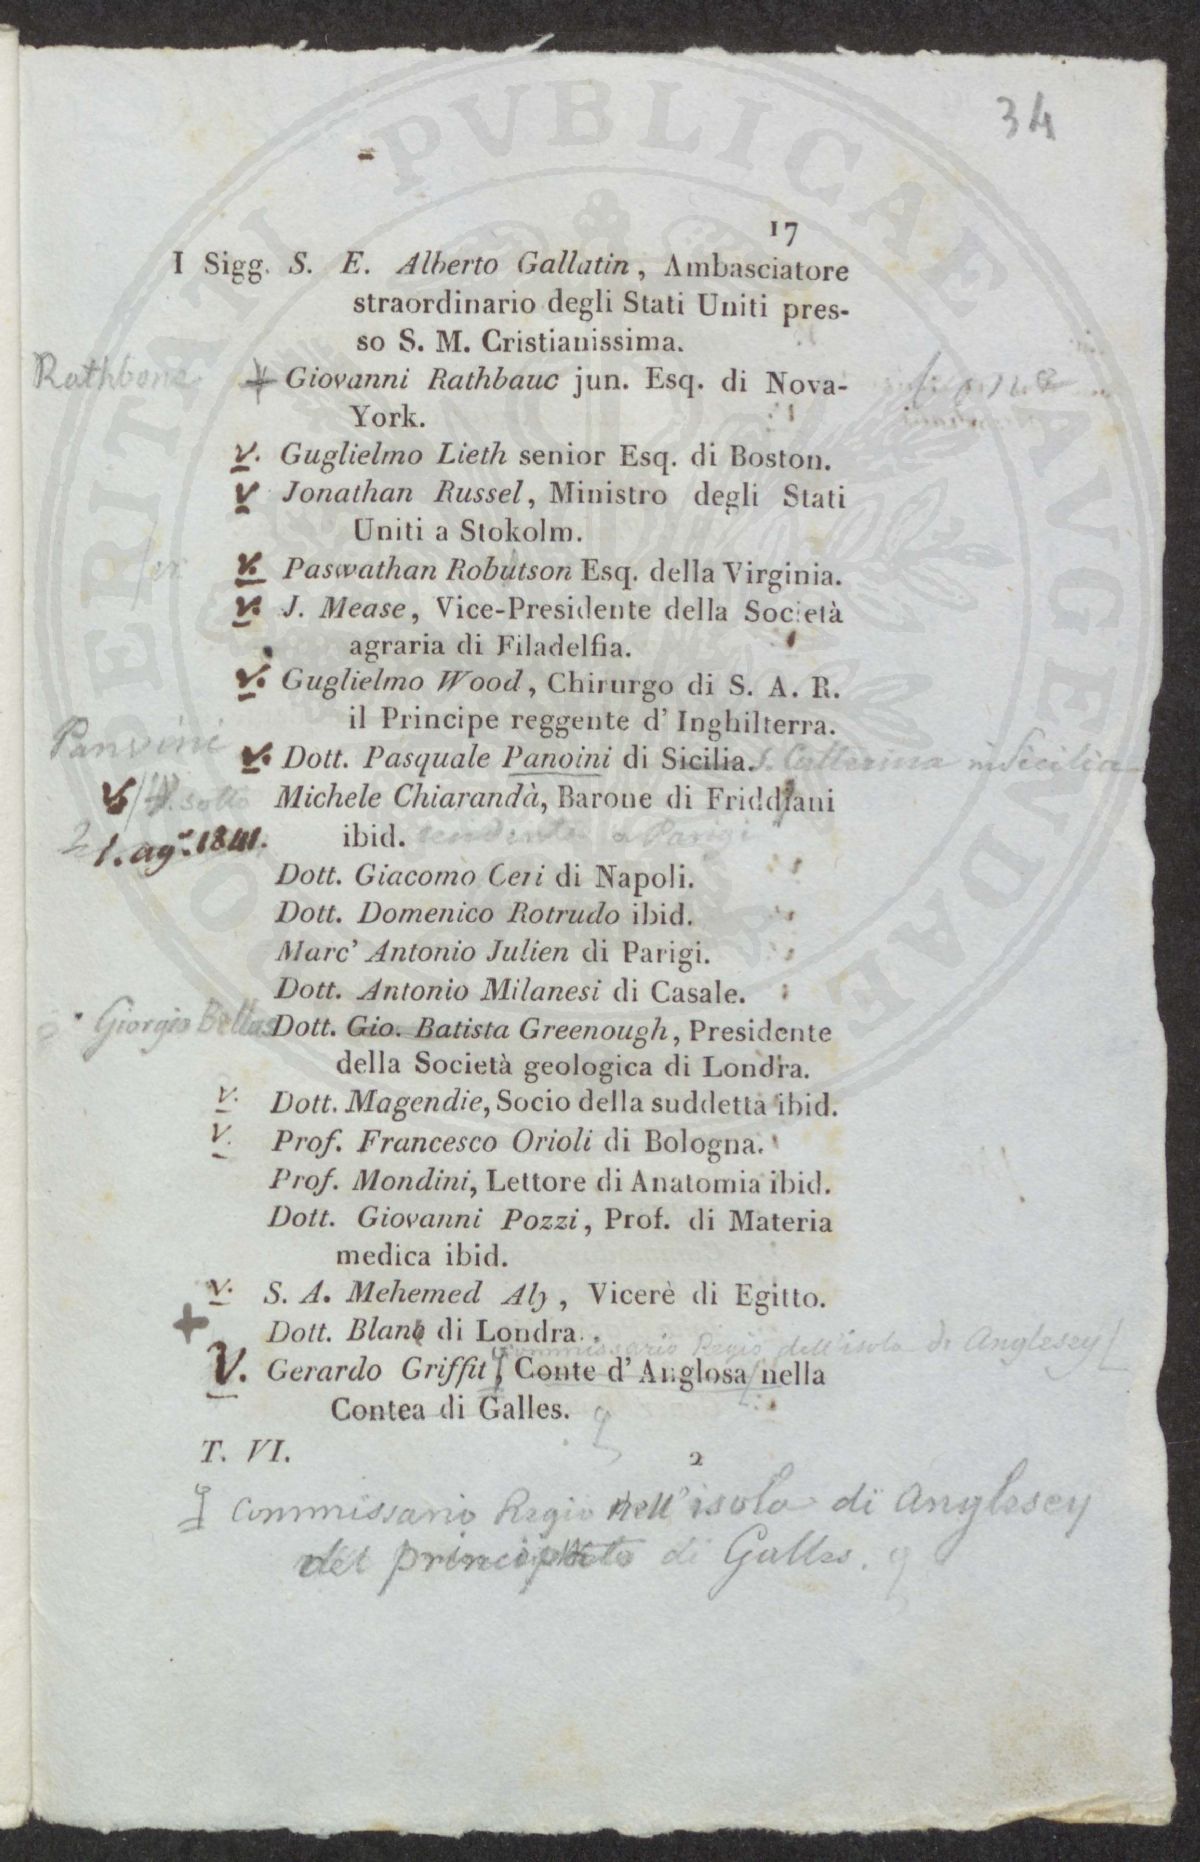 34
17
I Sigg. S. E. Alberto Gallatin, Ambasciatore
straordinario degli Stati Uniti pres-
so S. M. Cristianissima.
Rathbone Giovanni Rathbauc jun. Esq. di Nova-
York.
v. Guglielmo Lieth senior Esq. di Boston.
v Jonathan Russel, Ministro degli Stati
Uniti a Stokolm.
v. Paswathan Robutson Esq. della Virginia.
v. J. Mease, Vice-Presidente della Società
agraria di Filadelfia.
v. Guglielmo Wood, Chirurgo di S. A. R.
il Principe reggente d' Inghilterra.
Panvini v. Dott. Pasquale Panoini di Sicilia. S. Catterina in Sicilia
v sotto Michele Chiarandà, Barone di Friddiani
1. ag. 1841. ibid. residente a Parigi
Dott. Giacomo Ceri di Napoli.
Dott. Domenico Rotrudo ibid.
Marc' Antonio Julien di Parigi.
Dott. Antonio Milanesi di Casale.
Giorgio Bellas Dott. Gio. Batista Greenough, Presidente
della Società geologica di Londra.
v. Dott. Magendie, Socio della suddetta ibid.
v. Prof. Francesco Orioli di Bologna.
Prof. Mondini, Lettore di Anatomia ibid.
Dott. Giovanni Pozzi, Prof. di Materia
medica ibid.
v. S. A. Mehemed Aly, Vicerè di Egitto.
+ Dott. Blane di Londra.
Commissario Regio dell'isola di Anglesey
V. Gerardo Griffit, Conte d' Anglosa nella
Contea di Galles.
T. VI. 2
Commissario Regio nell'isola di Anglesey
del principato di Galles.
PROSPERITATI PUBLICAE AVGENDAE